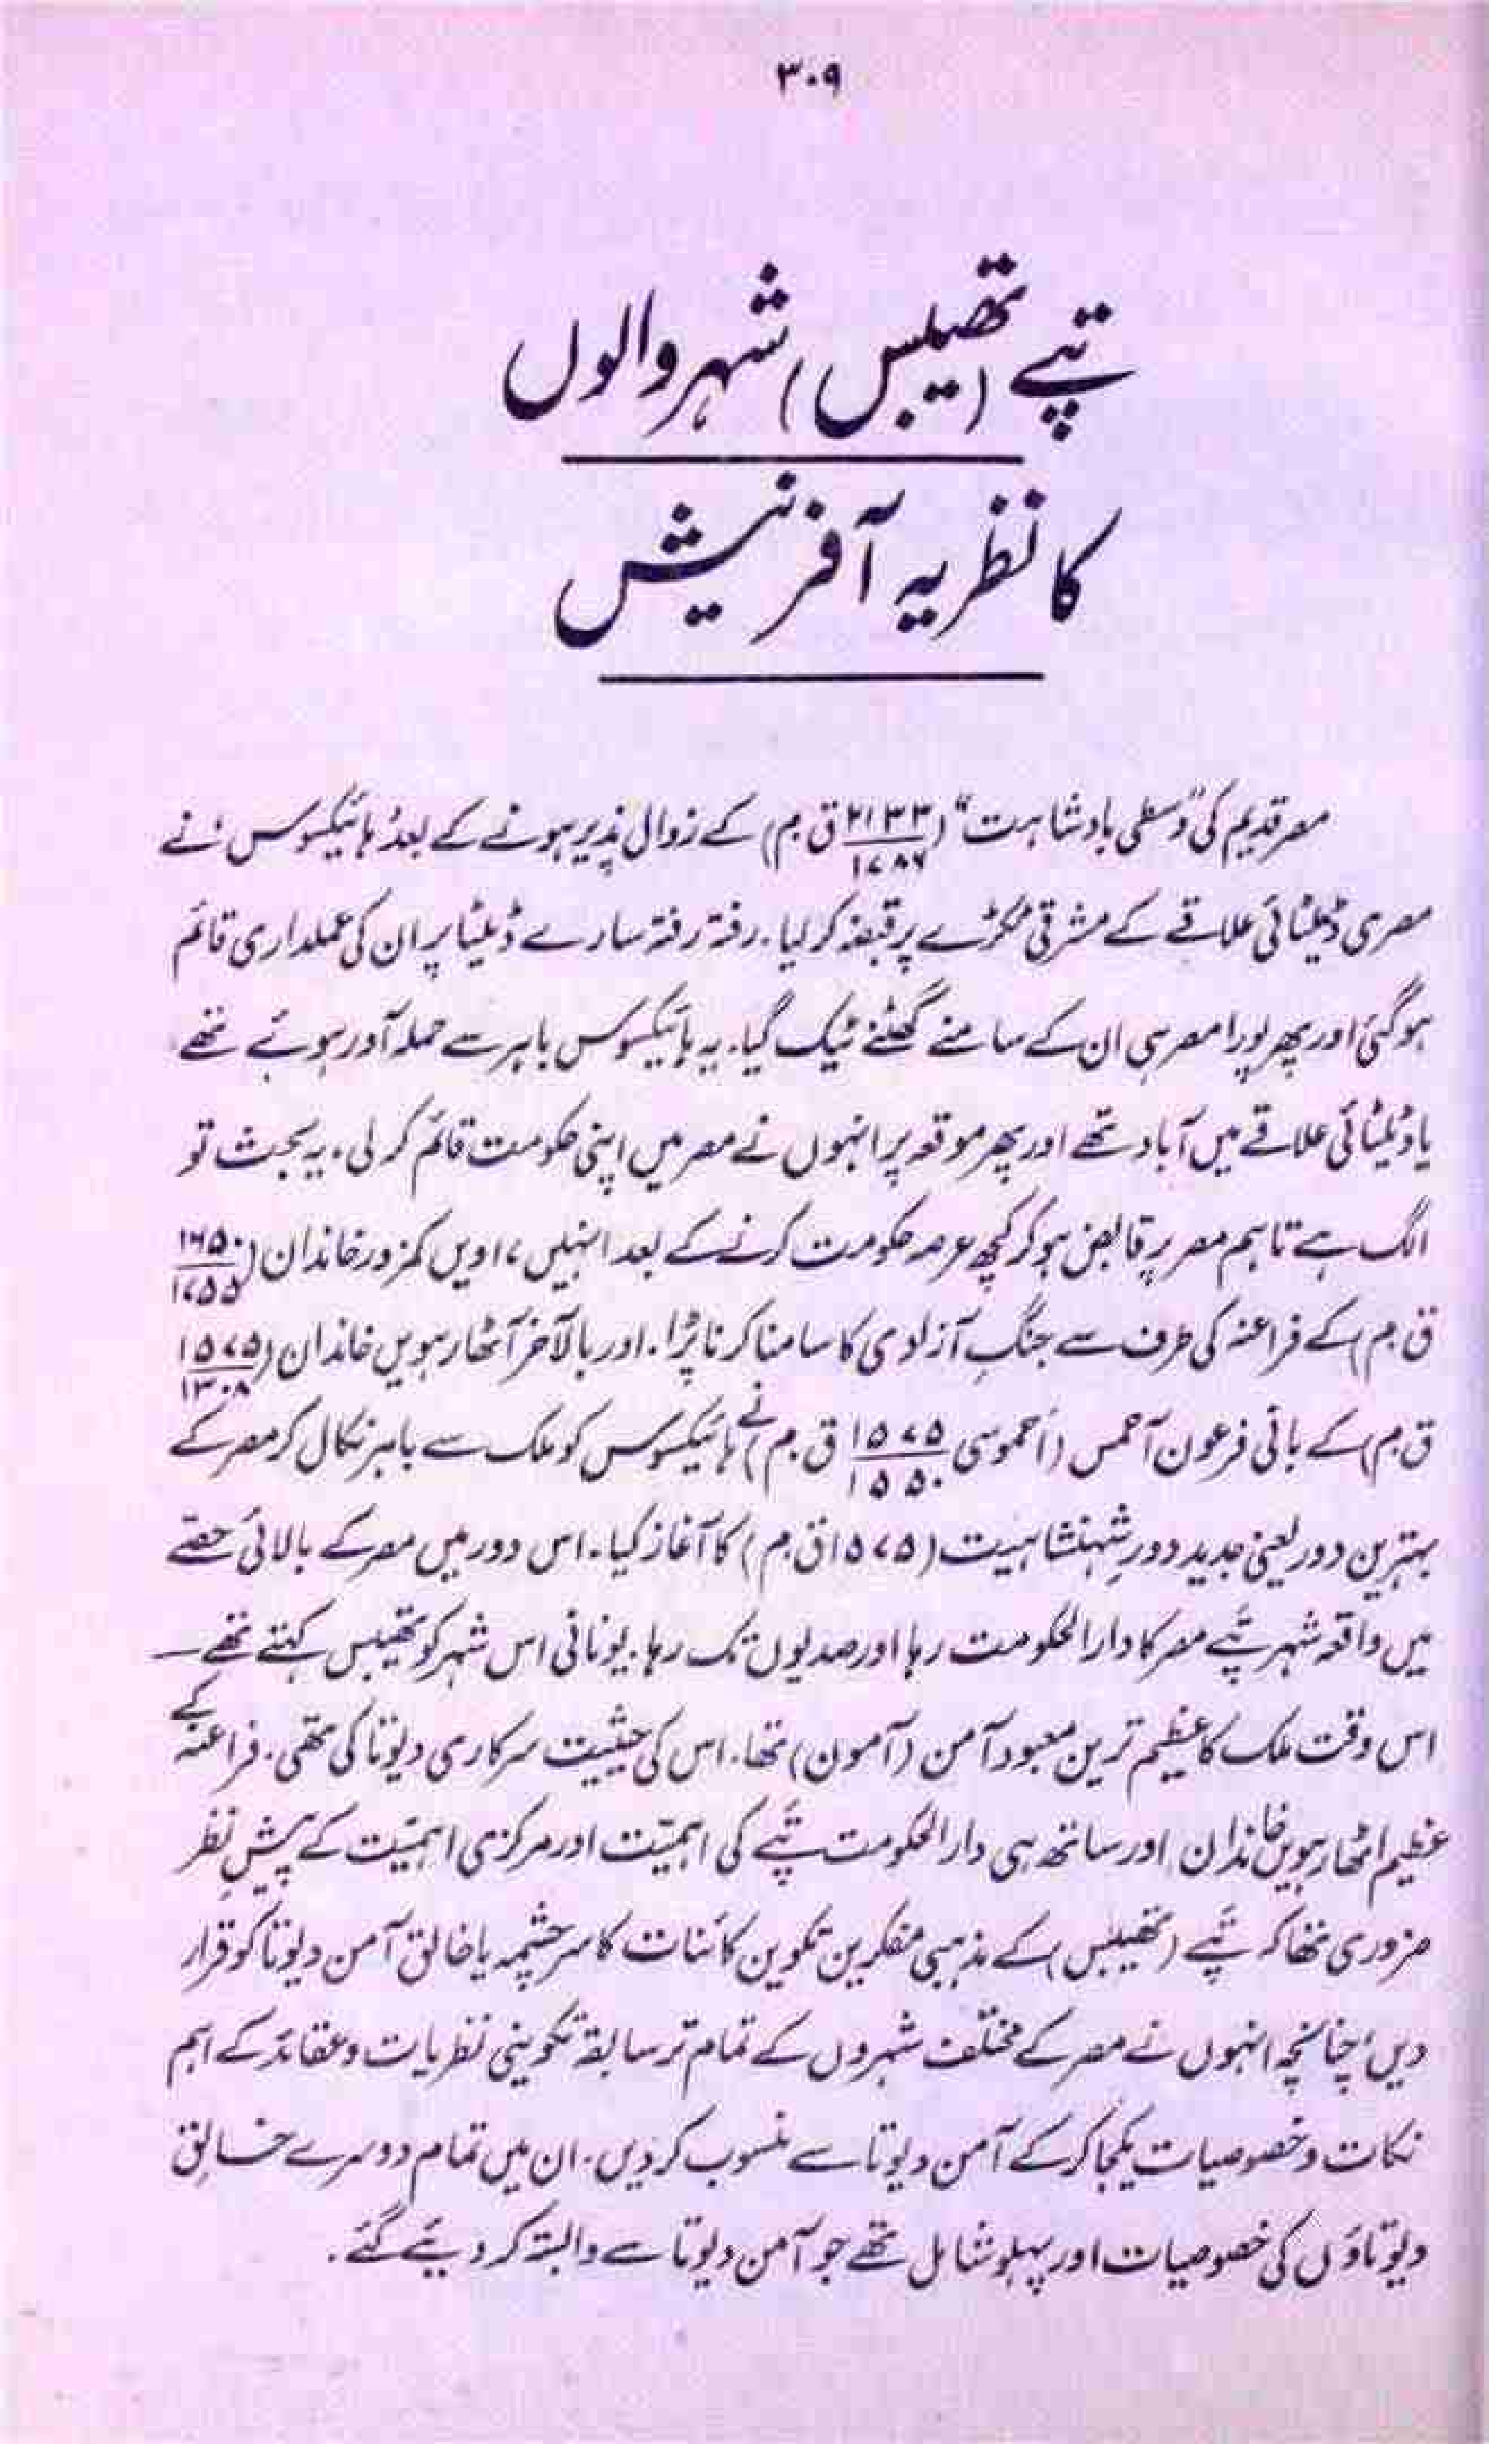 ۳۰۹
تپے (تھیبس) شہر والوں
کا نظریہ آفرینش
مصر قدیم کی "وسطی بادشاہت" (۲۱۳۳/۱۷۸۶ ق م) کے زوال پذیر ہونے کے بعد ہائیکسوس نے
مصری ڈیلٹائی علاقے کے مشرقی ٹکڑے پر قبضہ کر لیا۔ رفتہ رفتہ سارے ڈیلٹا پر ان کی عملداری قائم
ہو گئی اور پھر پورا مصر ہی ان کے سامنے گھٹنے ٹیک گیا۔ یہ ہائیکسوس باہر سے حملہ آور ہوئے تھے
یا ڈیلٹائی علاقے میں آباد تھے اور پھر موقعہ پر انہوں نے مصر میں اپنی حکومت قائم کر لی، یہ بحث تو
الگ ہے تاہم مصر پر قابض ہو کر کچھ عرصہ حکومت کرنے کے بعد انہیں ۱۷ویں کمزور خاندان (۱۶۵۰/۱۷۵۵
ق م) کے فراعنہ کی طرف سے جنگِ آزادی کا سامنا کرنا پڑا۔ اور بالآخر آٹھارہویں خاندان (۱۵۷۵/۱۳۰۸
ق م) کے بانی فرعون آحمس (اَحموسی ۱۵۷۵/۱۵۵۰ ق م) نے ہائیکسوس کو ملک سے باہر نکال کر مصر کے
بہترین دور یعنی جدید دورِ شہنشاہیت (۱۵۷۵ ق م) کا آغاز کیا۔ اس دور میں مصر کے بالائی حصّے
میں واقعہ شہر تپے مصر کا دارالحکومت رہا اور صدیوں تک رہا۔ یونانی اس شہر کو تھیبس کہتے تھے ــ
اس وقت ملک کا عظیم ترین معبود آمن (آمون) تھا۔ اس کی حیثیت سرکاری دیوتا کی تھی۔ فراعنہ کے
عظیم اٹھارہویں خاندان اور ساتھ ہی دارالحکومت تپے کی اہمیّت اور مرکزی اہمیّت کے پیشِ نظر
ضروری تھا کہ تپے (تھیبس) کے مذہبی مفکرین تکوین کائنات کا سرچشمہ یا خالق آمن دیوتا کو قرار
دیں، چنانچہ انہوں نے مصر کے مختلف شہروں کے تمام تر سابقہ تکوینی نظریات و عقائد کے اہم
نکات و خصوصیات یکجا کر کے آمن دیوتا سے منسوب کر دیں۔ ان میں تمام دوسرے خالق
دیوتاؤں کی خصوصیات اور پہلو شامل تھے جو آمن دیوتا سے وابستہ کر دیئے گئے۔